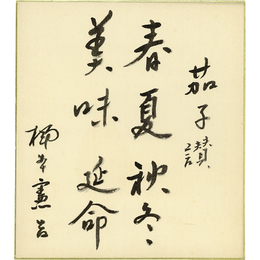 茄子讃
春夏秋冬
美味延命
楠本憲吉